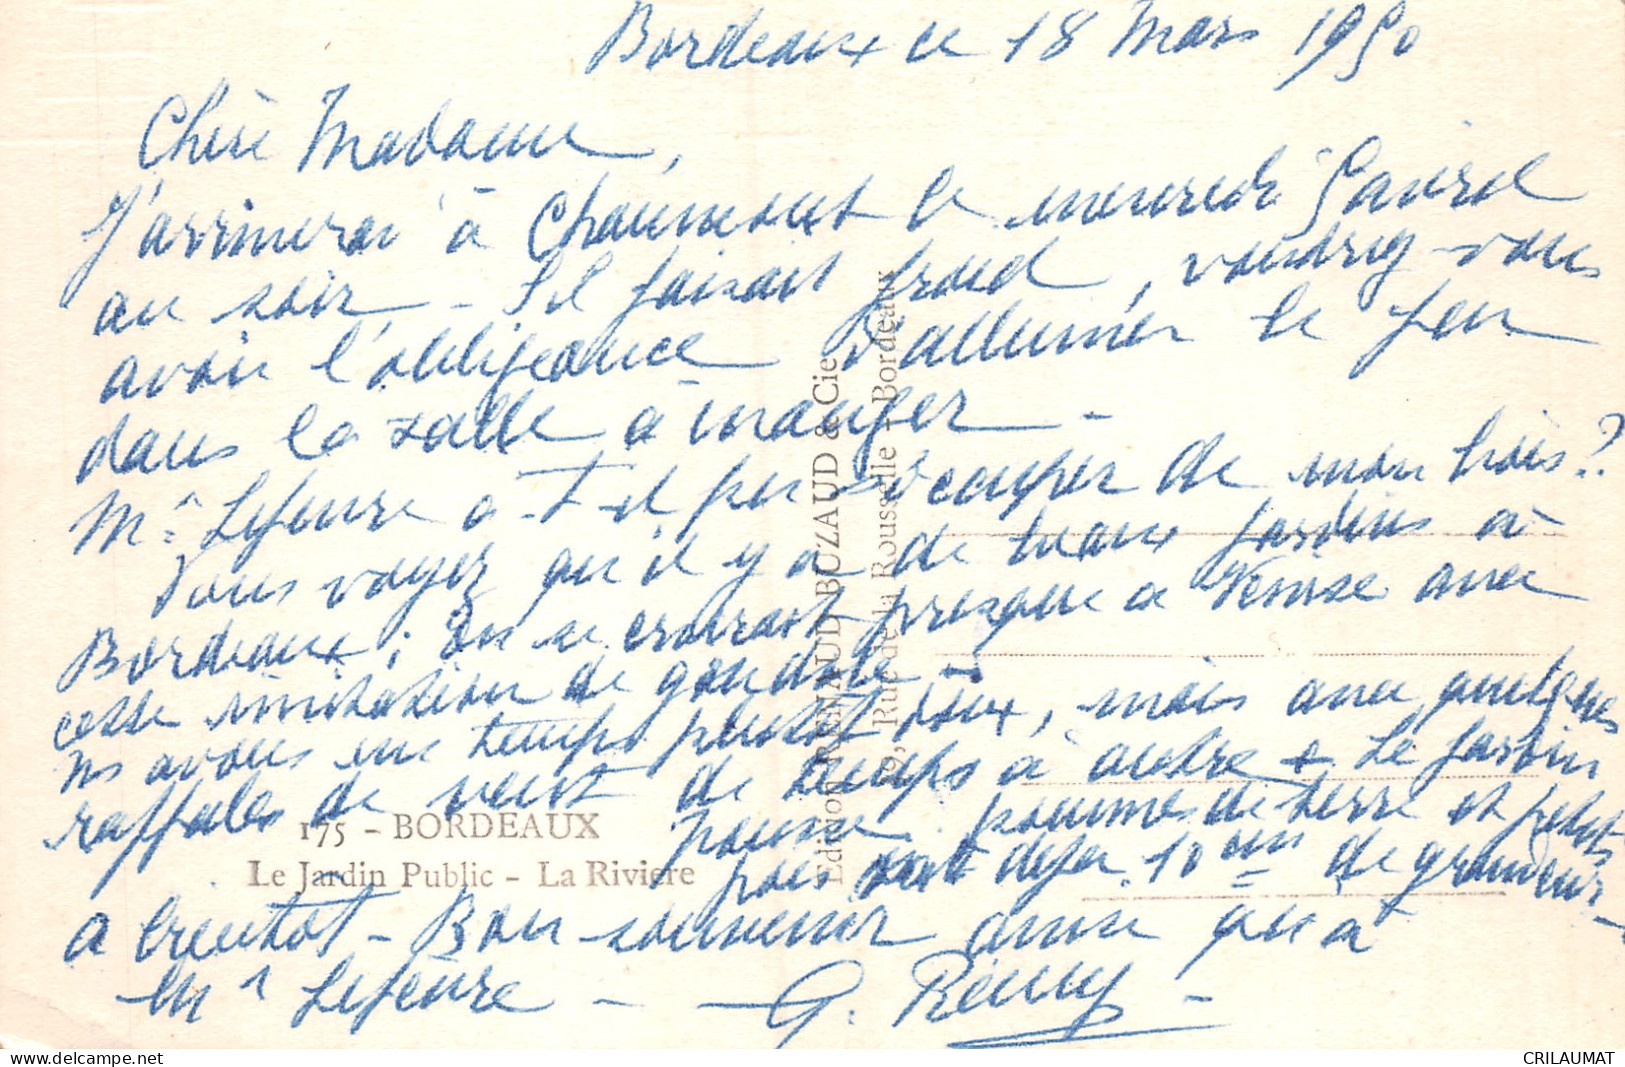 Bordeaux ce 18 Mars 1950
Chère Madame,
J'arriverai à Chaumont le mercredi 5 avril
au soir - S'il faisait froid, voudriez-vous
avoir l'obligeance d'allumer le feu
dans la salle à manger -
Mr Lefeuvre a-t-il pu s'occuper de mon bois?
Vous voyez qu'il y a de beaux jardins à
Bordeaux; On se croirait presque à Venise avec
cette imitation de gondole -
Ns avons un temps plutôt doux, mais avec quelques
raffales de vent de temps à autre + Le jardin
pousse. pommes de terre et petits
pois sont déjà 10 cm de grandeur -
A bientôt - Bon souvenir ainsi qu'à
Mr Lefeuvre - G. Rémy -
175 - BORDEAUX
Le Jardin Public - La Rivière
Edition RENAUD-BUZAUD & Cie
Rue de la Rousselle - Bordeaux
CRILAUMAT